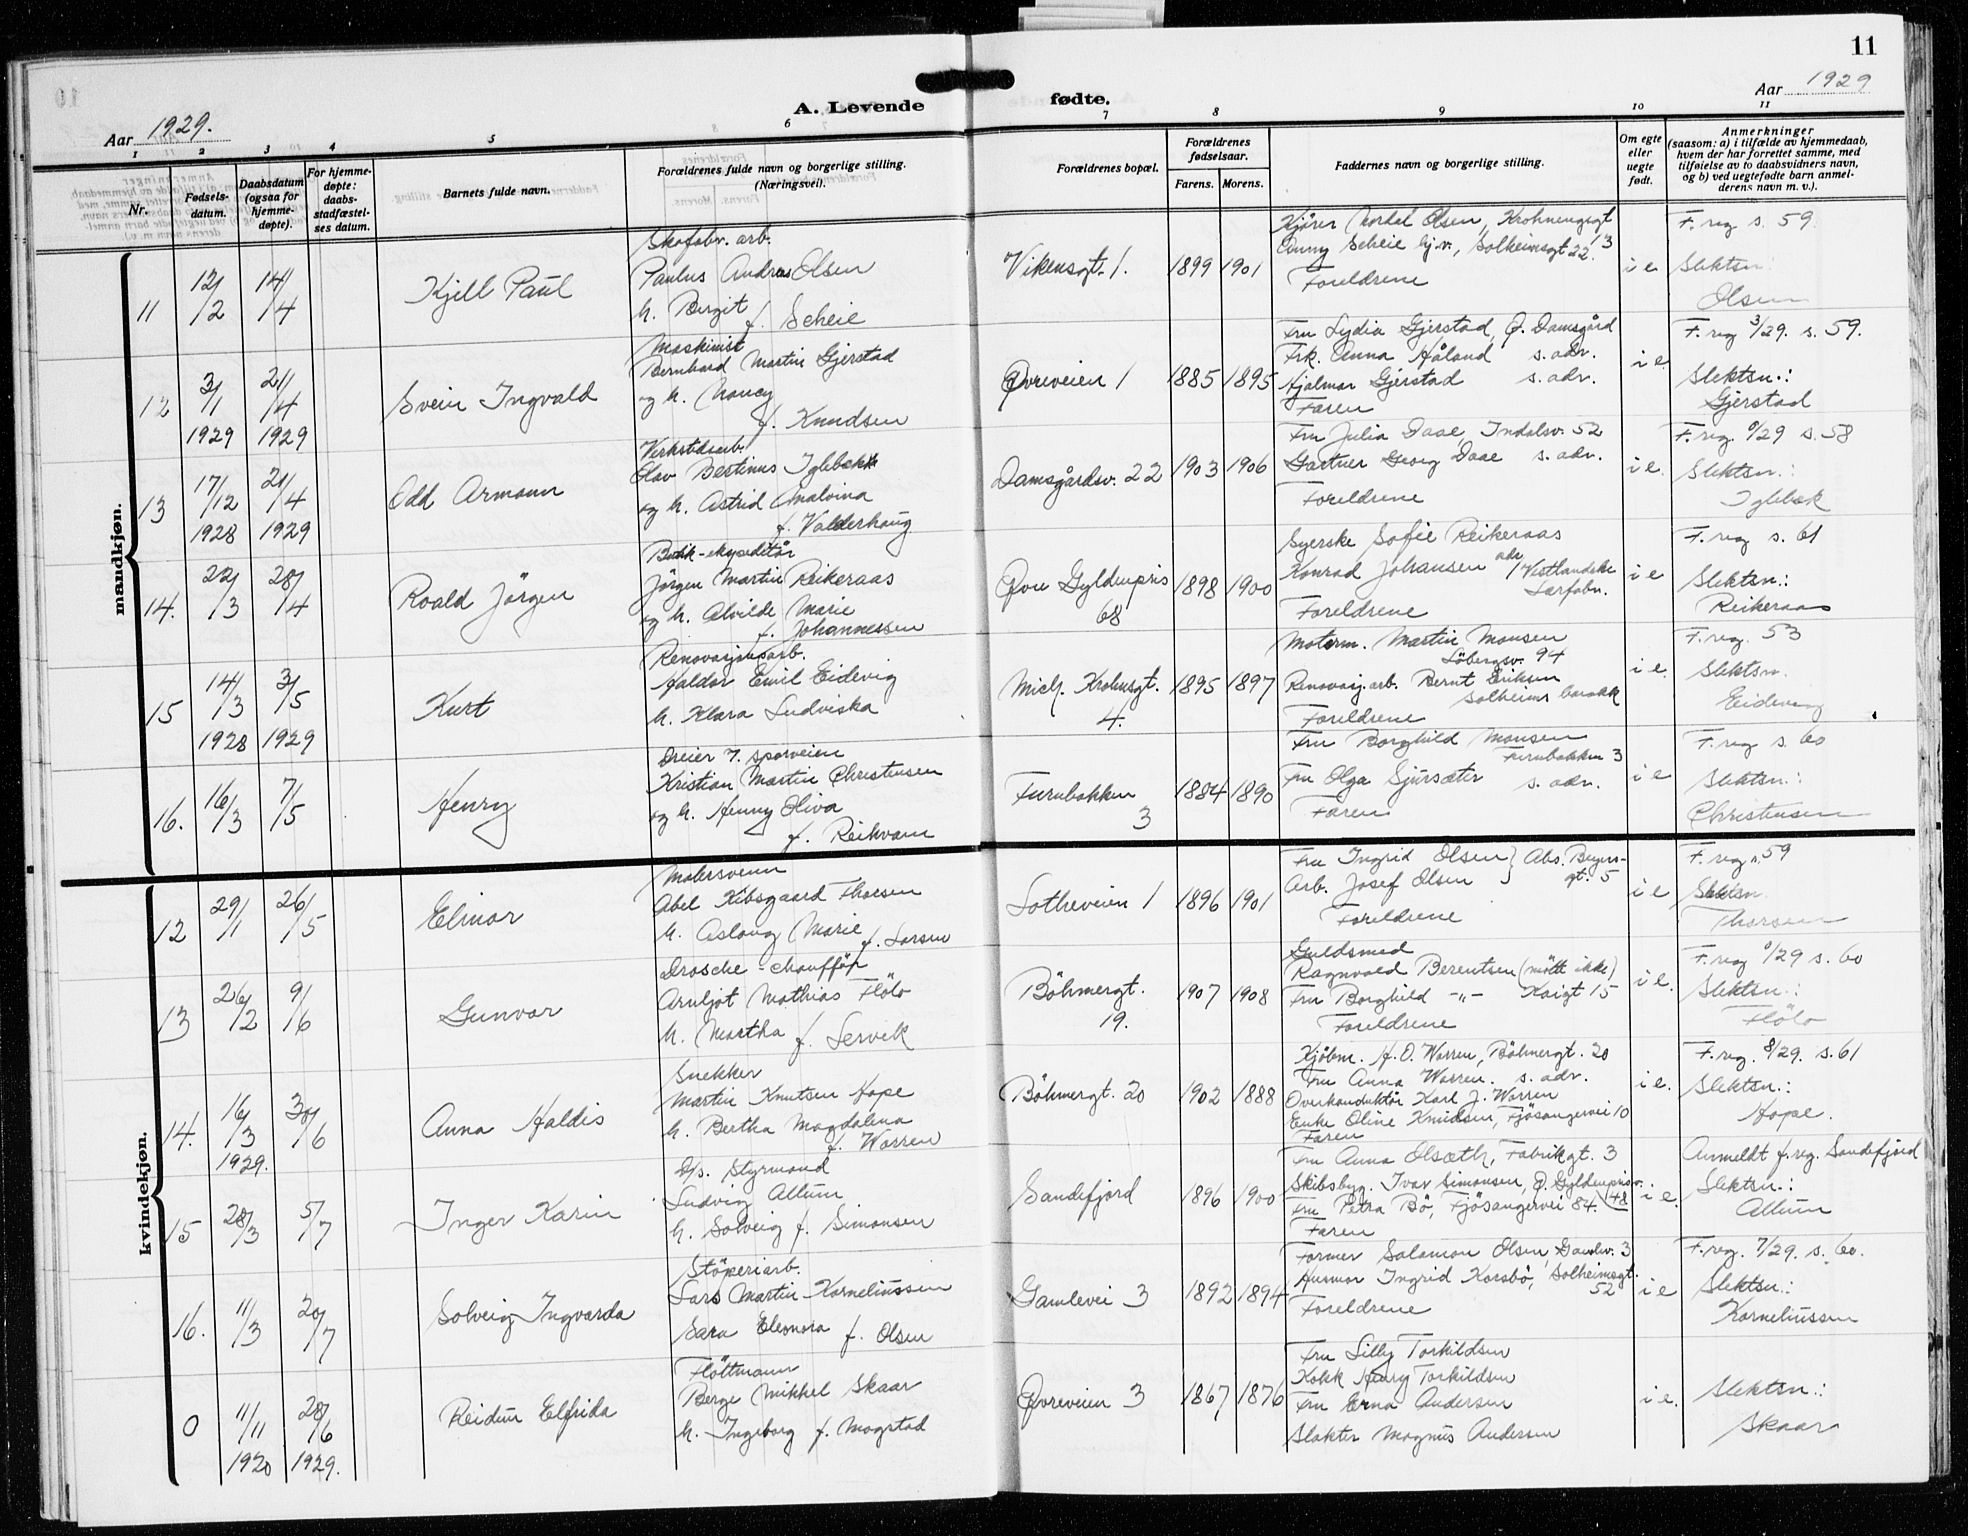 11
Aar 1929.
A. Levende
fødte.
Aar 1929
1 2 3 4 5 6 7 8 9 10 11
Nr.
Fødsels-datum.
Daabsdatum (ogsaa for hjemme-døpte).
For hjemme-døpte: daabs-stadfæstel-ses datum.
Barnets fulde navn.
Forældrenes fulde navn og borgerlige stilling. (Næringsvei).
Forældrenes bopæl.
Forældrenes fødselsaar.
Farens. Morens.
Faddernes navn og borgerlige stilling.
Om egte eller uegte født.
Anmerkninger
(saasom: a) i tilfælde av hjemmedaab, hvem der har forrettet samme, med tilføielse av to daabsvidners navn, og b) ved uegtefødte barn anmel-derens navn m. v.).
mandkjøn.
11
12/2
14/4
Kjell Paul
Skofabr. arb.
Paulus Andreas Olsen
h. Bergit
f. Scheie
Vikensgt. 1.
1899 1901
Olsen, Krohnengsgt 13
Anny Scheie hj.v., Solheimsgt 22
Foreldrene
i e
F. reg s. 59
Slektsn:
Olsen
12
3/1 1929
21/4 1929
Svein Ingvald
Maskinist
Bernhard Martin Gjerstad
og h. Nancy
f. Knudsen
Øvreveien 1
1885 1895
Fru Lydia Gjerstad, Ø. Damsgård
Frk. Anna Håland s. adr.
Hjalmar Gjerstad s. adr.
Faren
i e
F. reg 3/29. s. 59.
Slektsn.:
Gjerstad
13
17/12 1928
21/4 1929
Odd Armann
Verkstedarb.
Olav Bertinus Iglebekk
og h. Astrid Malvina
f. Valderhaug
Damsgårdsv. 22
1903 1906
Fru Julia Daae, Indalsv. 52
Gartner Georg Daae s. adr.
Foreldrene
i e.
F. reg. 9/29 s. 58
Slektsn.:
Iglebæk
14.
22/3
28/4
Roald Jörgen
Butik-ekspeditör
Jörgen Martin Reikeraas
og h. Alvilde Marie
f. Johannessen
Øvre Gyldenpris
68
1898 1900
Syerske Sofie Reikeraas
Konrad Johansen adr/Vestlandske
Lærfabr.
Foreldrene
i e
F. reg s. 61
Slektsn.:
Reikeraas
15
14/3 1928
3/5 1929
Kurt
Renovasjonsarb.
Haldor Emil Eidevig
h. Klara Ludviska
Mich. Krohnsgt.
4.
1895 1897
Motorm. Martin Monsen
Löbergsv. 94
Renovasj. arb. Bernt Eriksen
Solheims barakk
Foreldrene
i e.
F. reg. 53
Slektsn.
Eidevig
16.
16/3
7/5
Henry
Dreier v. sporveien
Kristian Martin Christensen
og h. Henny Oliva
f. Reikvam
Furubakken
3
1884 1890
Fru Borghild Monsen
Furubakken 3
Fru Olga Sjursæter s. adr.
Faren
i e
F. reg s. 60
Slektsn.:
Christensen
kvindekjøn.
12
29/1
26/5
Elinor
Malersvenn
Abel Kibsgaard Thorsen
h. Aslaug Marie
f. Larsen
Lotheveien 1
1896 1901
Fru Ingrid Olsen } Abs. Beyers-
Arb. Josef Olsen } gt. 5
Foreldrene
i e
F. reg s. 59
Slektsn
Thorsen
13
26/2
9/6
Gunvor
Drosche-chaufför
Arnljot Mathias Flölo
h. Martha f. Lervik
Böhmergt.
19.
1907 1908
Guldsmed
Ragnvald Berentsen (mött ikke)
Fru Borghild -"- Kaigt 15
Foreldrene
i e.
F. reg 9/29 s. 60
Slektsn.:
Flölo
14.
16/3 1929.
30/6
Anna Haldis
Snekker
Martin Knutsen Hope
h. Bertha Magdalena
f. Warren
Böhmergt. 20
1902 1888
Kjöbm. H. O. Warren, Böhmergt. 20
Fru Anna Warren. s. adr.
Overkonduktör Karl J. Warren
Enke Oline Knudsen, Fjösangervei 10
Faren
i e.
F. reg. 8/29. s. 61
Slektsn.:
Hope.
15
28/3
5/7
Inger Karin
D/s. Styrmand
Ludvig Allum
h. Solveig f. Simonsen
Sandefjord
1896 1900
Fru Anna Olsæth, Fabrikgt. 3
Skibsbyg. Ivar Simonsen, Ø. Gyldenprisv. 48
Fru Petra Bö, Fjösangervei 84.
Faren
i e.
Anmeldt f. reg. Sandefjord
Slektsn.:
Allum
16.
11/3
20/7
Solveig Ingvarda
Stöperiarb.
Lars Martin Korneliussen
Sara Eleonora f. Olsen
Gamlevei 3
1892 1894
Former Salamon Olsen, Gamlev. 3
Husmor Ingrid Korsbö, Solheimsgt. 52
Foreldrene
i e
F. reg. 7/29. s. 60.
Slektsn.:
Korneliussen
0
11/11 1920
28/6 1929.
Reidun Elfrida
Flöttmann
Berge Mikkel Skaar
h. Ingeborg f. Magstad
Øvreveien 3
1867 1876
Fru Lilly Torkildsen
Kokk Henry Torkildsen
Fru Erna Andersen
Slakter Magnus Andersen
i e.
Slektsn.:
Skaar